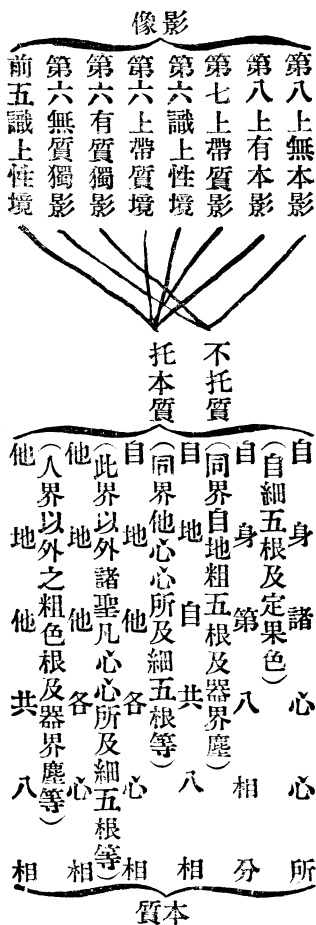 影像
第八上無本影
第八上有本影
第七上帶質影
第六識上性境
第六上帶質境
第六有質獨影
第六無質獨影
前五識上性境
不托質
托本質
自身諸心心所
（自細五根及定果色）
自身第八相分
（同界自地粗五根及器界塵）
自地自共八相
（同界他心心所及細五根等）
自地他各心相
（此界以外諸聖凡心心所及細五根等）
他地他各心相
（人界以外之粗色根及器界塵等）
他地他共八相
本質